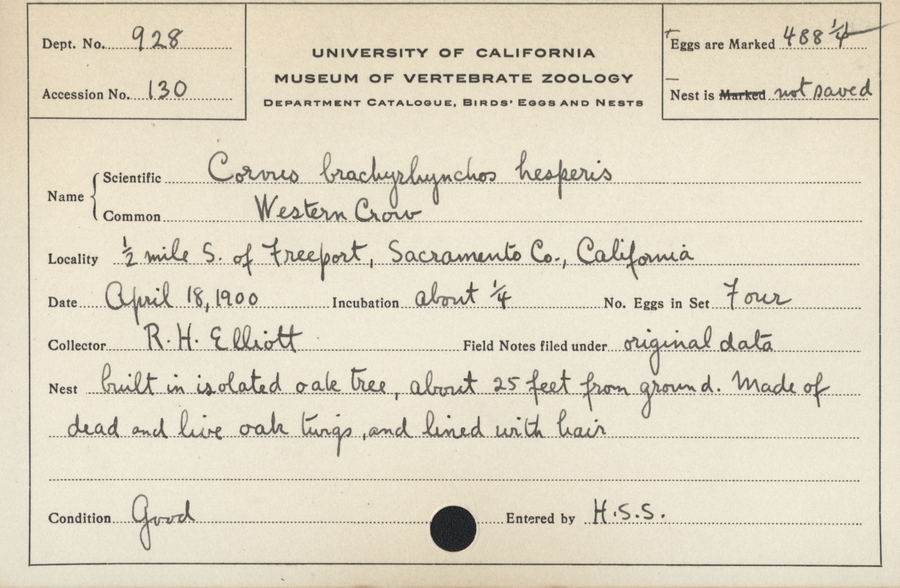 Dept. No. 928
Accession No. 130
UNIVERSITY OF CALIFORNIA
MUSEUM OF VERTEBRATE ZOOLOGY
DEPARTMENT CATALOGUE, BIRDS' EGGS AND NESTS
Eggs are Marked 488 1/4
Nest is Marked not saved
Name
Scientific Corvus brachyrhynchos hesperis
Common Western Crow
Locality 1/2 mile S. of Freeport, Sacramento Co., California
Date April 18, 1900 Incubation about 1/4 No. Eggs in Set Four
Collector R. H. Elliott Field Notes filed under original data
Nest built in isolated oak tree, about 25 feet from ground. Made of
dead and live oak twigs, and lined with hair
Condition Good Entered by H.S.S.